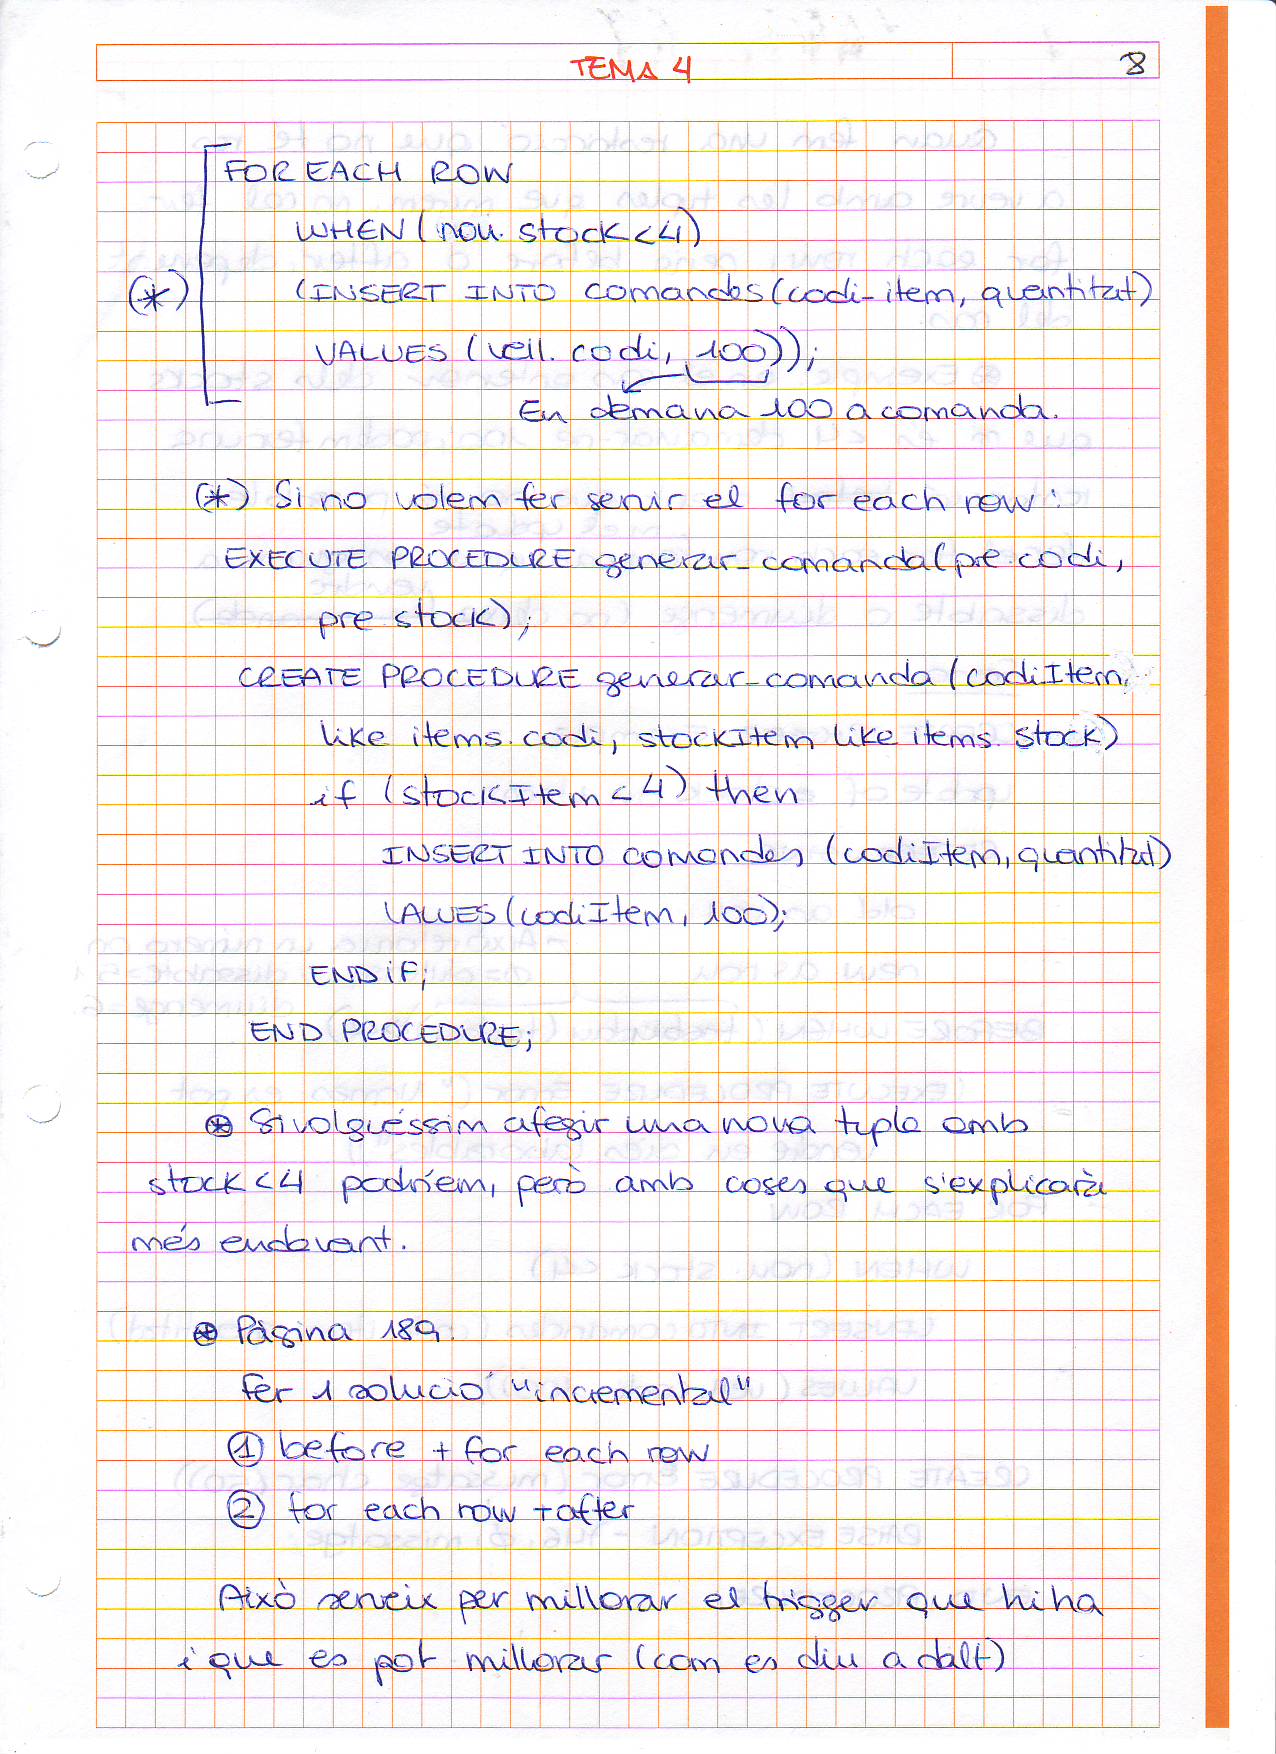 TEMA 4
8
FOR EACH ROW
WHEN (nou.stock<4)
(*)
(INSERT INTO comandes(codi-item, quantitat)
VALUES (vell.codi, 100));
En demana 100 a comanda.
(*) Si no volem fer servir el for each row:
EXECUTE PROCEDURE generar_comanda(pre.codi,
pre.stock);
CREATE PROCEDURE generar_comanda (codiItem
like items.codi, stockItem like items.stock)
if (stockItem < 4) then
INSERT INTO comandes (codiItem, quantitat)
VALUES (codiItem, 100);
END IF;
END PROCEDURE;
⊛ Si volguéssim afegir una nova tupla amb
stock<4 podríem, però amb coses que s'explicarà
més endavant.
⊛ Pàgina 189.
Fer 1 solució "incremental"
① before + for each row
② for each row + after
Això serveix per millorar el trigger que hi ha
i que es pot millorar (com es diu a dalt)